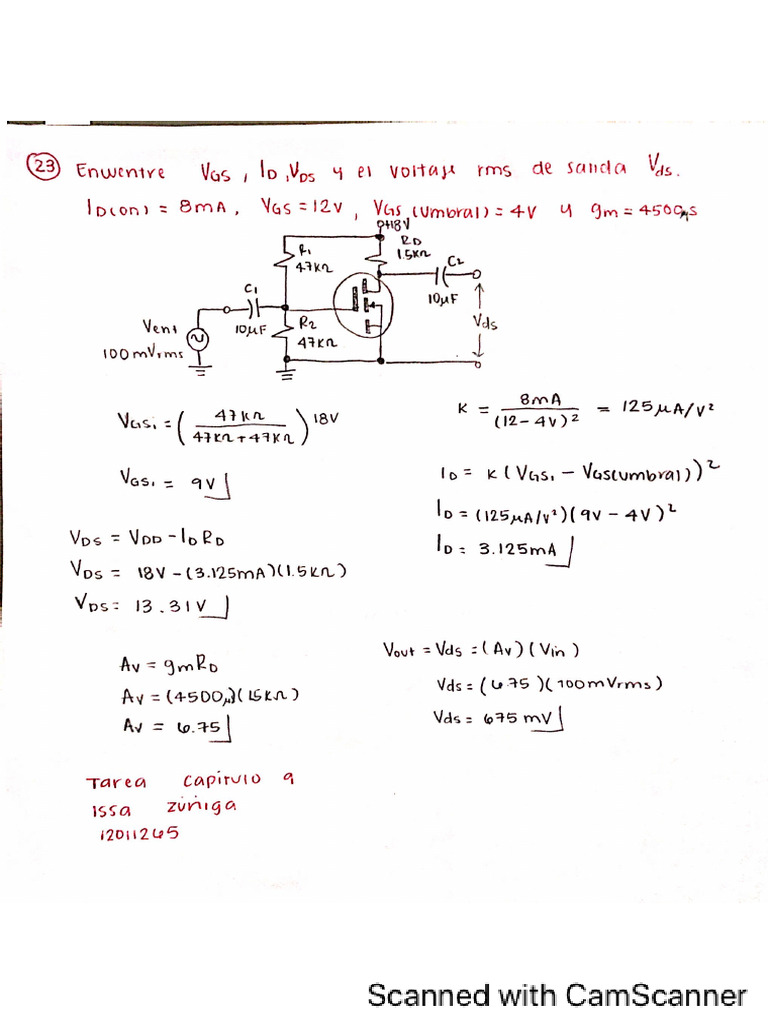 23 Encuentre VGS, ID, VDS y el voltaje rms de salida Vds.
ID(on) = 8mA, VGS = 12V, VGS (umbral) = 4V y gm = 4500µS
+18V
RD
1.5KΩ
R1
47KΩ
C2
10µF
C1
10µF
R2
47KΩ
Vent
100 mVrms
Vds
VGS1 = (47KΩ / 47KΩ + 47KΩ) 18V
VGS1 = 9V
K = 8mA / (12 - 4V)² = 125 µA/V²
ID = K (VGS1 - VGS(umbral))²
ID = (125µA/V²)(9V - 4V)²
ID = 3.125mA
VDS = VDD - ID RD
VDS = 18V - (3.125mA)(1.5KΩ)
VDS = 13.31V
Av = gmRD
Av = (4500µ)(1.5KΩ)
Av = 6.75
Vout = Vds = (Av)(Vin)
Vds = (6.75)(100mVrms)
Vds = 675 mV
Tarea capitulo 9
issa zúñiga
12011265
Scanned with CamScanner